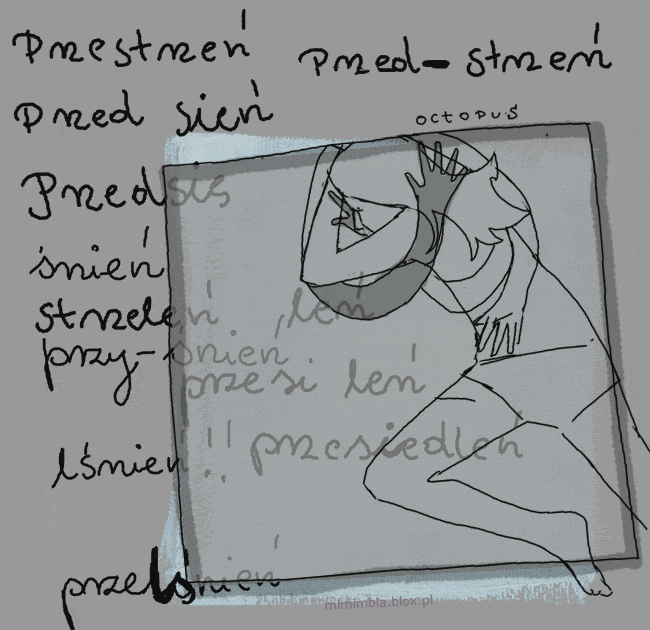 Przestrzeń
Przed-strzeń
Przed sień
OCTOPUS
Przedsię
śnień
strzeleń ,leń
przy-śnień
przesi leń
lśnień!! przesiedleń
przelśnień
mimimbla.blox.pl